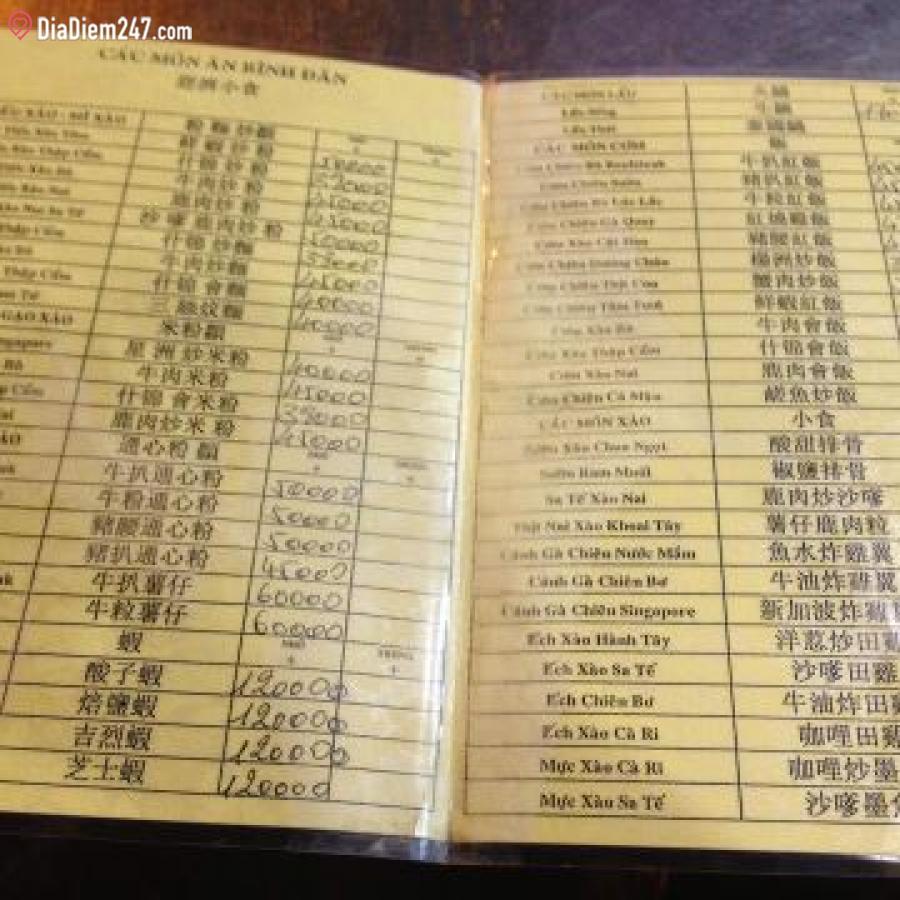 DiaDiem247.com
CÁC MÓN ĂN BÌNH DÂN
經濟小食
XÀO - MÌ XÀO 粉麵炒類
Xào Tôm 鮮蝦炒粉 50000
Xào Thập Cẩm 什錦炒粉 55000
Xào Bò 牛肉炒粉 45000
Xào Nai 鹿肉炒粉 45000
Xào Nai Sa Tế 沙嗲鹿肉炒粉 50000
Thập Cẩm 什錦炒麵 55000
Bò 牛肉炒麵 45000
Thập Cẩm 什錦會麵 40000
三絲炆麵 40000
GẠO XÀO 米粉類
ngapore 星洲炒米粉 40000
Bò 牛肉米粉 45000
ập Cẩm 什錦會米粉 35000
鹿肉炒米粉 45000
通心粉類
牛扒通心粉 50000
牛粉通心粉 50000
豬腰通心粉 50000
豬扒通心粉 45000
牛扒薯仔 60000
牛粒薯仔 60000
蝦
酸子蝦 120000
焙鹽蝦 120000
吉烈蝦 120000
芝士蝦 120000
CÁC MÓN LẨU 火鍋
Lẩu Thái 泰國鍋
CÁC MÓN CƠM 飯
牛扒紅飯
豬扒紅飯
Cơm Chiên Bò Lúc Lắc 牛粒紅飯
Cơm Chiên Gà Quay 紅燒雞飯
豬腰紅飯
Cơm Chiên Dương Châu 楊洲炒飯
蟹肉炒飯
Cơm Chiên Tôm Tươi 鮮蝦紅飯
Cơm Xào Bò 牛肉會飯
Cơm Xào Thập Cẩm 什錦會飯
Cơm Xào Nai 鹿肉會飯
Cơm Chiên Cá Mặn 鹹魚炒飯
CÁC MÓN XÀO 小食
Sườn Xào Chua Ngọt 酸甜排骨
Sườn Ram Muối 椒鹽排骨
Sa Tế Xào Nai 鹿肉炒沙嗲
Thịt Nai Xào Khoai Tây 薯仔鹿肉粒
Cánh Gà Chiên Nước Mắm 魚水炸雞翼
Cánh Gà Chiên Bơ 牛油炸雞翼
Cánh Gà Chiên Singapore 新加波炸雞
Ếch Xào Hành Tây 洋蔥炒田雞
Ếch Xào Sa Tế 沙嗲田雞
Ếch Chiên Bơ 牛油炸田
Ếch Xào Cà Ri 咖哩田雞
Mực Xào Cà Ri 咖哩炒墨
Mực Xào Sa Tế 沙嗲墨